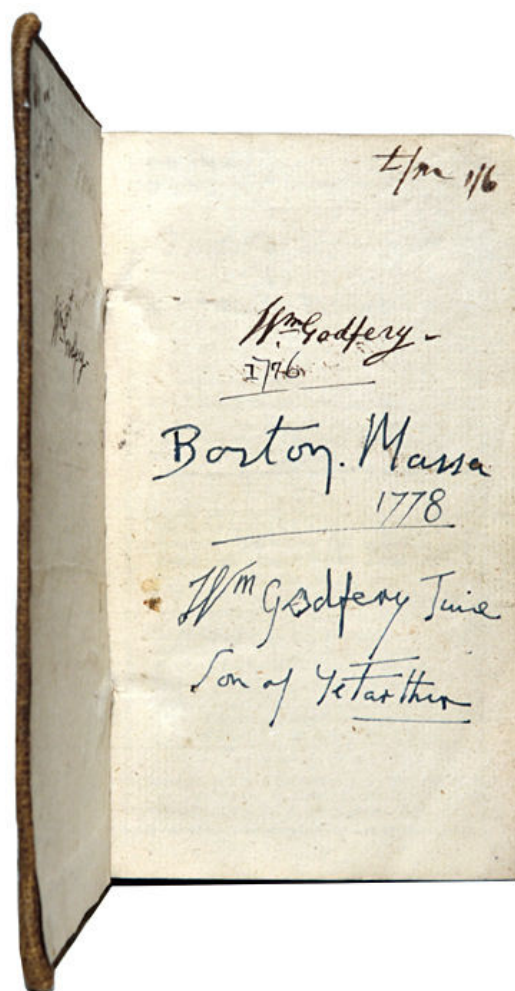 1/6
Wm Godfery
1776
Boston. Massa
1778
Wm Godfery June
Son of Ye Farther